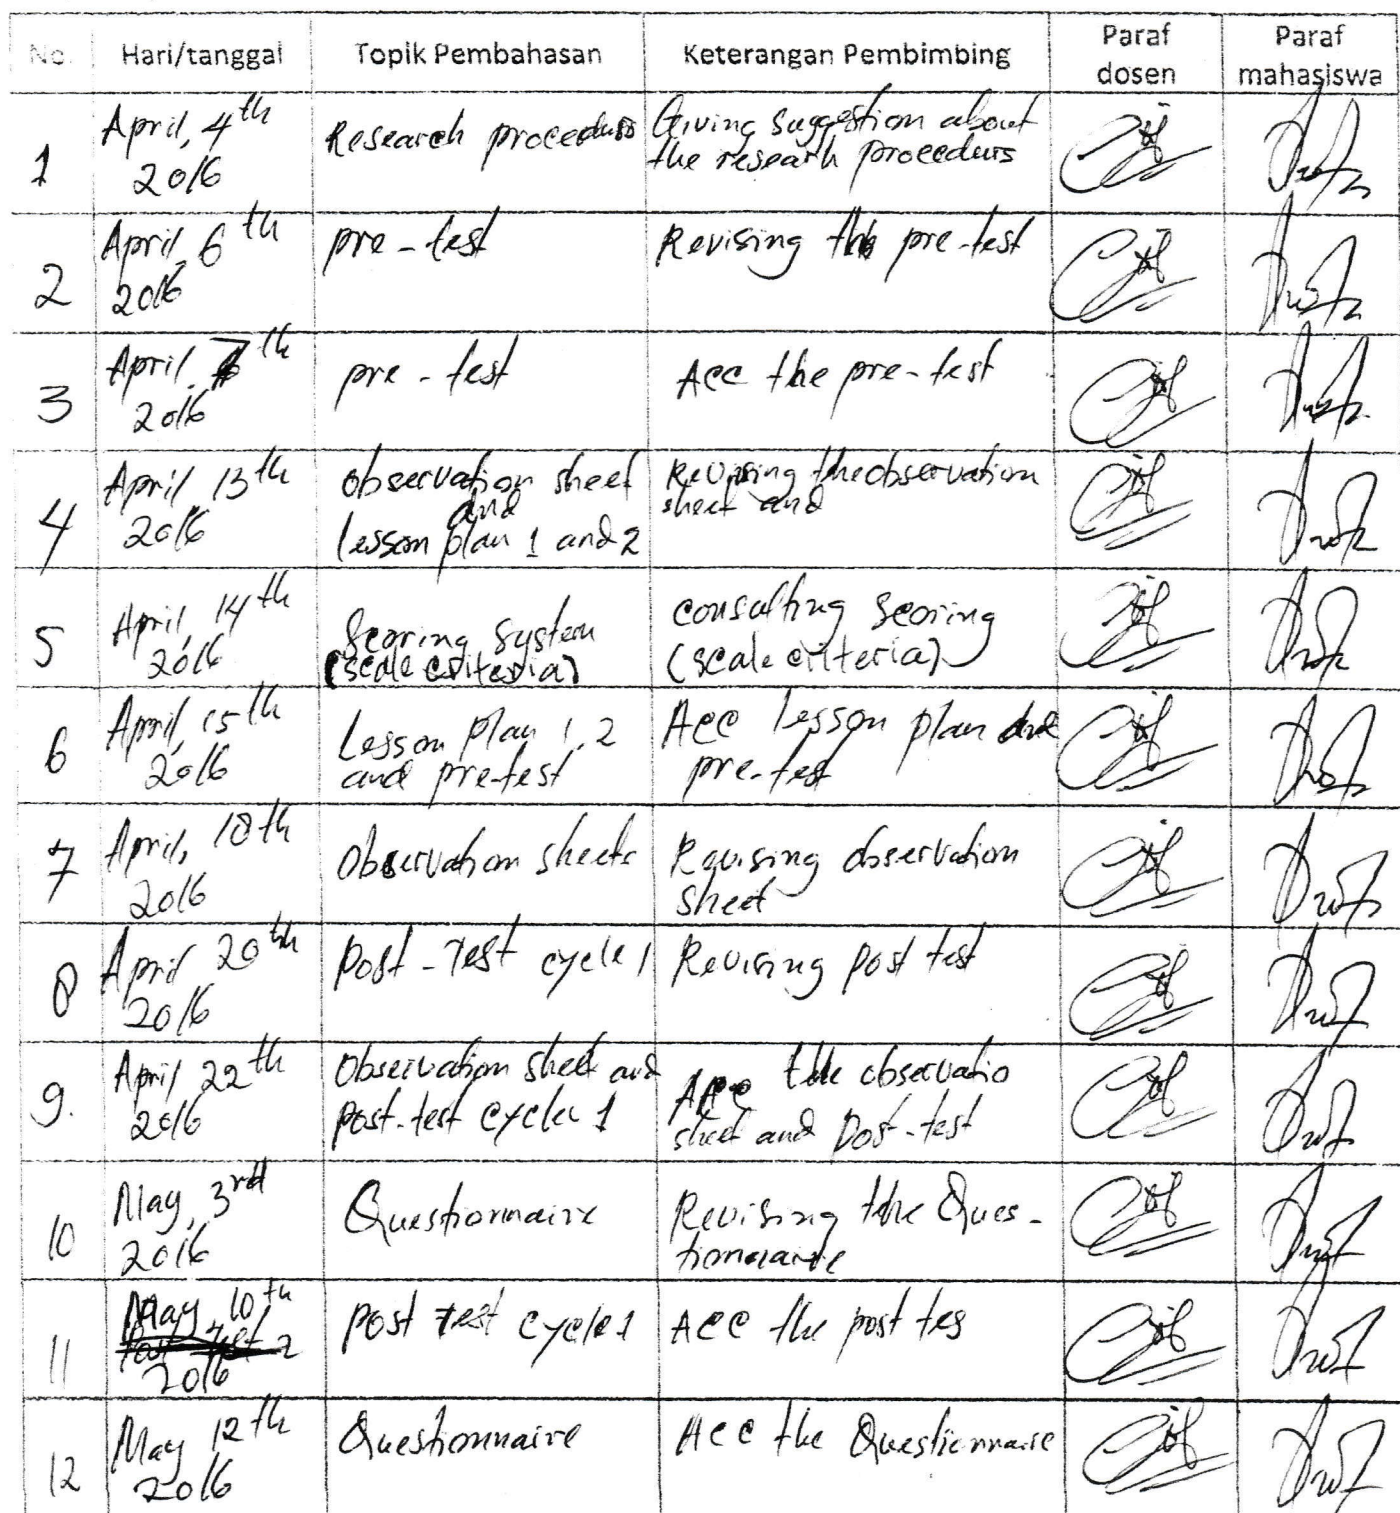 No. Hari/tanggal Topik Pembahasan Keterangan Pembimbing Paraf dosen Paraf mahasiswa
1 April, 4th 2016 Research procedurs Giving suggestion about the researh procedurs
2 April, 6th 2016 pre-test Revising the pre-test
3 April, 7th 2016 pre-test Acc the pre-test
4 April 13th 2016 observation sheet and lesson plan 1 and 2 Revising the observation sheet and
5 April, 14th 2016 Scoring System (scale criteria) consulting scoring (scale criteria)
6 April, 15th 2016 Lesson plan 1, 2 and pre-test Acc lesson plan and pre-test
7 April, 18th 2016 Observation sheets Revising observation sheet
8 April 20th 2016 Post-Test cycle 1 Revising post test
9. April 22th 2016 Observation sheet and post-test cycle 1 Acc the observatio sheet and Post-test
10 May, 3rd 2016 Questionnaire Revising the Ques-tionnaire
11 May, 10th 2016 Post test cycle 1 Acc the post tes
12 May 12th 2016 Questionnaire Acc the Questionnaire